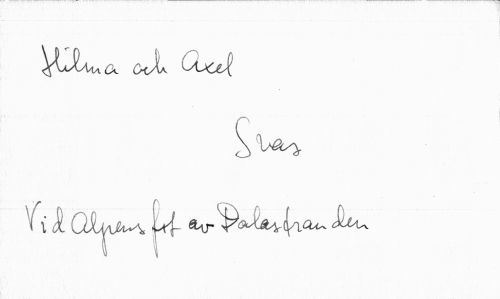 Hilma och Axel
Svar
Vid Alpens fot av Dalastranden